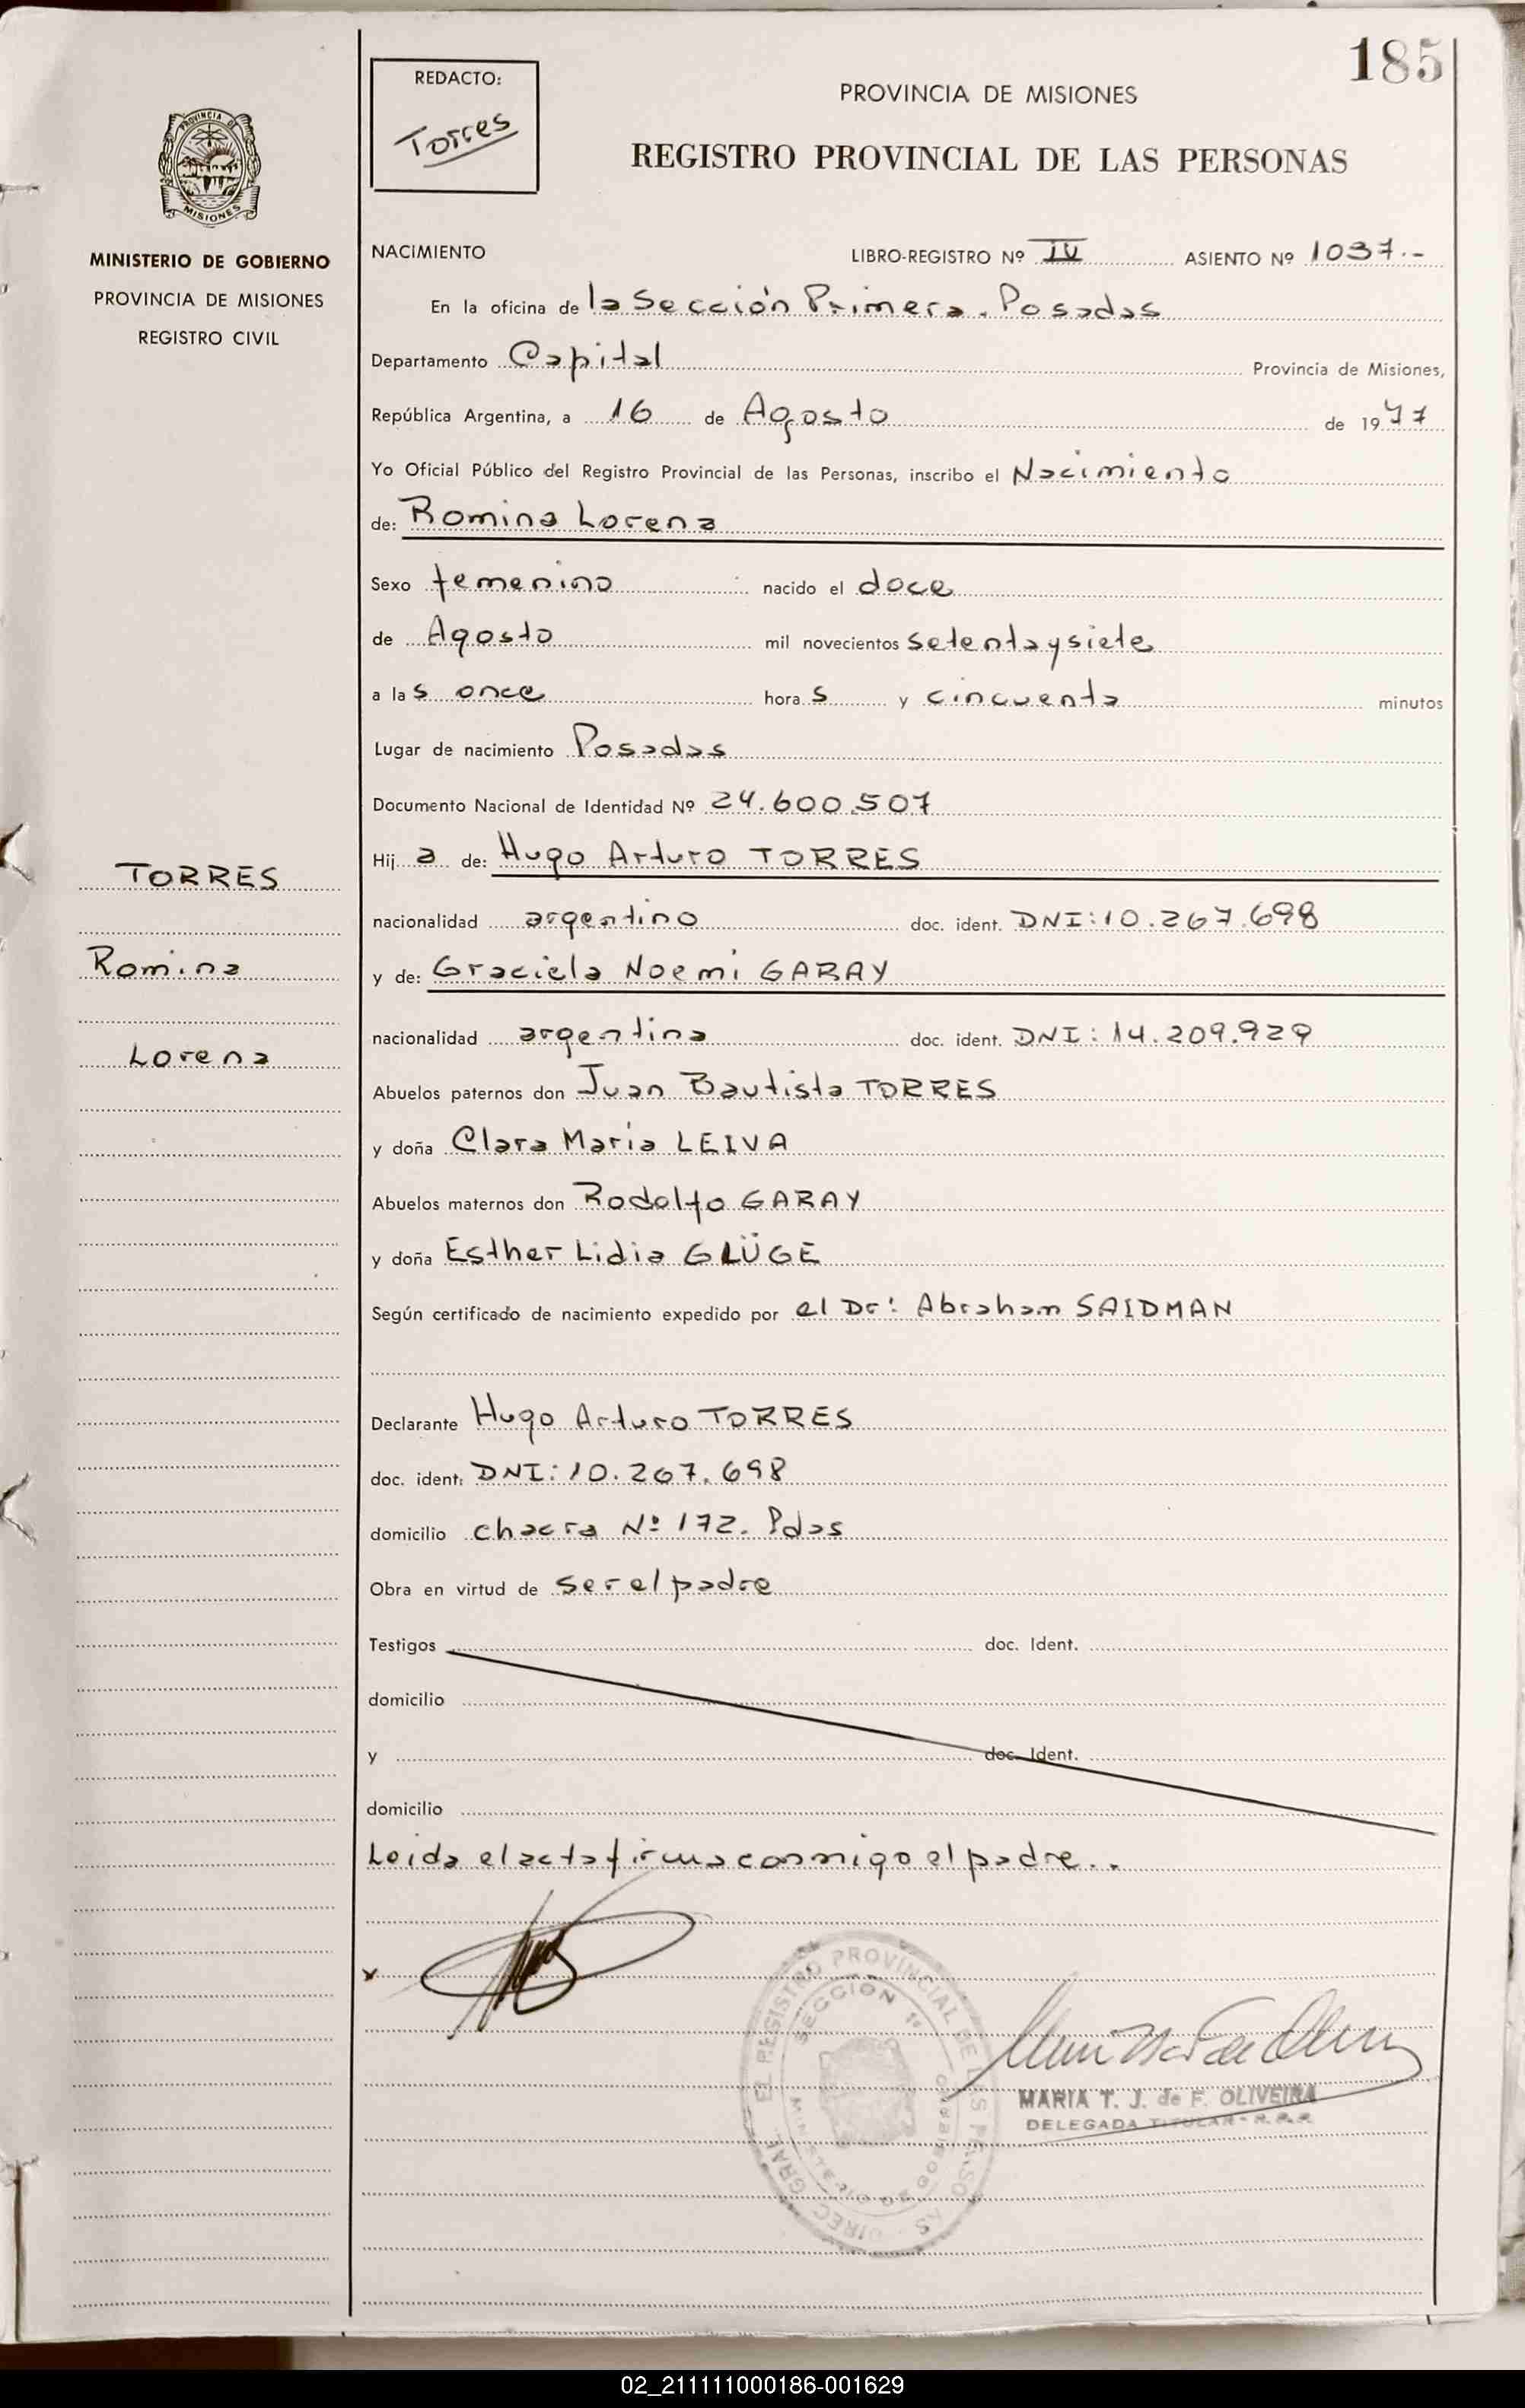 185
REDACTO:
Torres
PROVINCIA DE MISIONES
REGISTRO PROVINCIAL DE LAS PERSONAS
PROVINCIA D
MISIONES
MINISTERIO DE GOBIERNO
PROVINCIA DE MISIONES
REGISTRO CIVIL
NACIMIENTO LIBRO-REGISTRO Nº IV ASIENTO Nº 1037.-
En la oficina de la Sección Primera. Posadas
Departamento Capital Provincia de Misiones,
República Argentina, a 16 de Agosto de 1977
Yo Oficial Público del Registro Provincial de las Personas, inscribo el Nacimiento
de: Romina Lorena
Sexo femenino nacido el doce
de Agosto mil novecientos setenta y siete
a las once horas y cincuenta minutos
Lugar de nacimiento Posadas
Documento Nacional de Identidad Nº 24.600.507
Hija de: Hugo Arturo TORRES
nacionalidad argentino doc. ident. DNI: 10.267.698
y de: Graciela Noemi GARAY
nacionalidad argentina doc. ident. DNI: 14.209.929
Abuelos paternos don Juan Bautista TORRES
y doña Clara Maria LEIVA
Abuelos maternos don Rodolfo GARAY
y doña Esther Lidia GLÜGE
Según certificado de nacimiento expedido por el Dr: Abraham SAIDMAN
Declarante Hugo Arturo TORRES
doc. ident. DNI: 10.267.698
domicilio chacra Nº 172. Pdas
Obra en virtud de ser el padre
Testigos doc. Ident.
domicilio
y doc. Ident.
domicilio
Leida el acta firma conmigo el padre..
TORRES
Romina
Lorena
x
EL REGISTRO PROVINCIAL DE LAS PERSONAS - DIREC. GRAL.
SECCION 1º
MINISTERIO DE GOBIERNO
MARIA T. J. de F. OLIVEIRA
DELEGADA TITULAR - R.P.P.
02_211111000186-001629